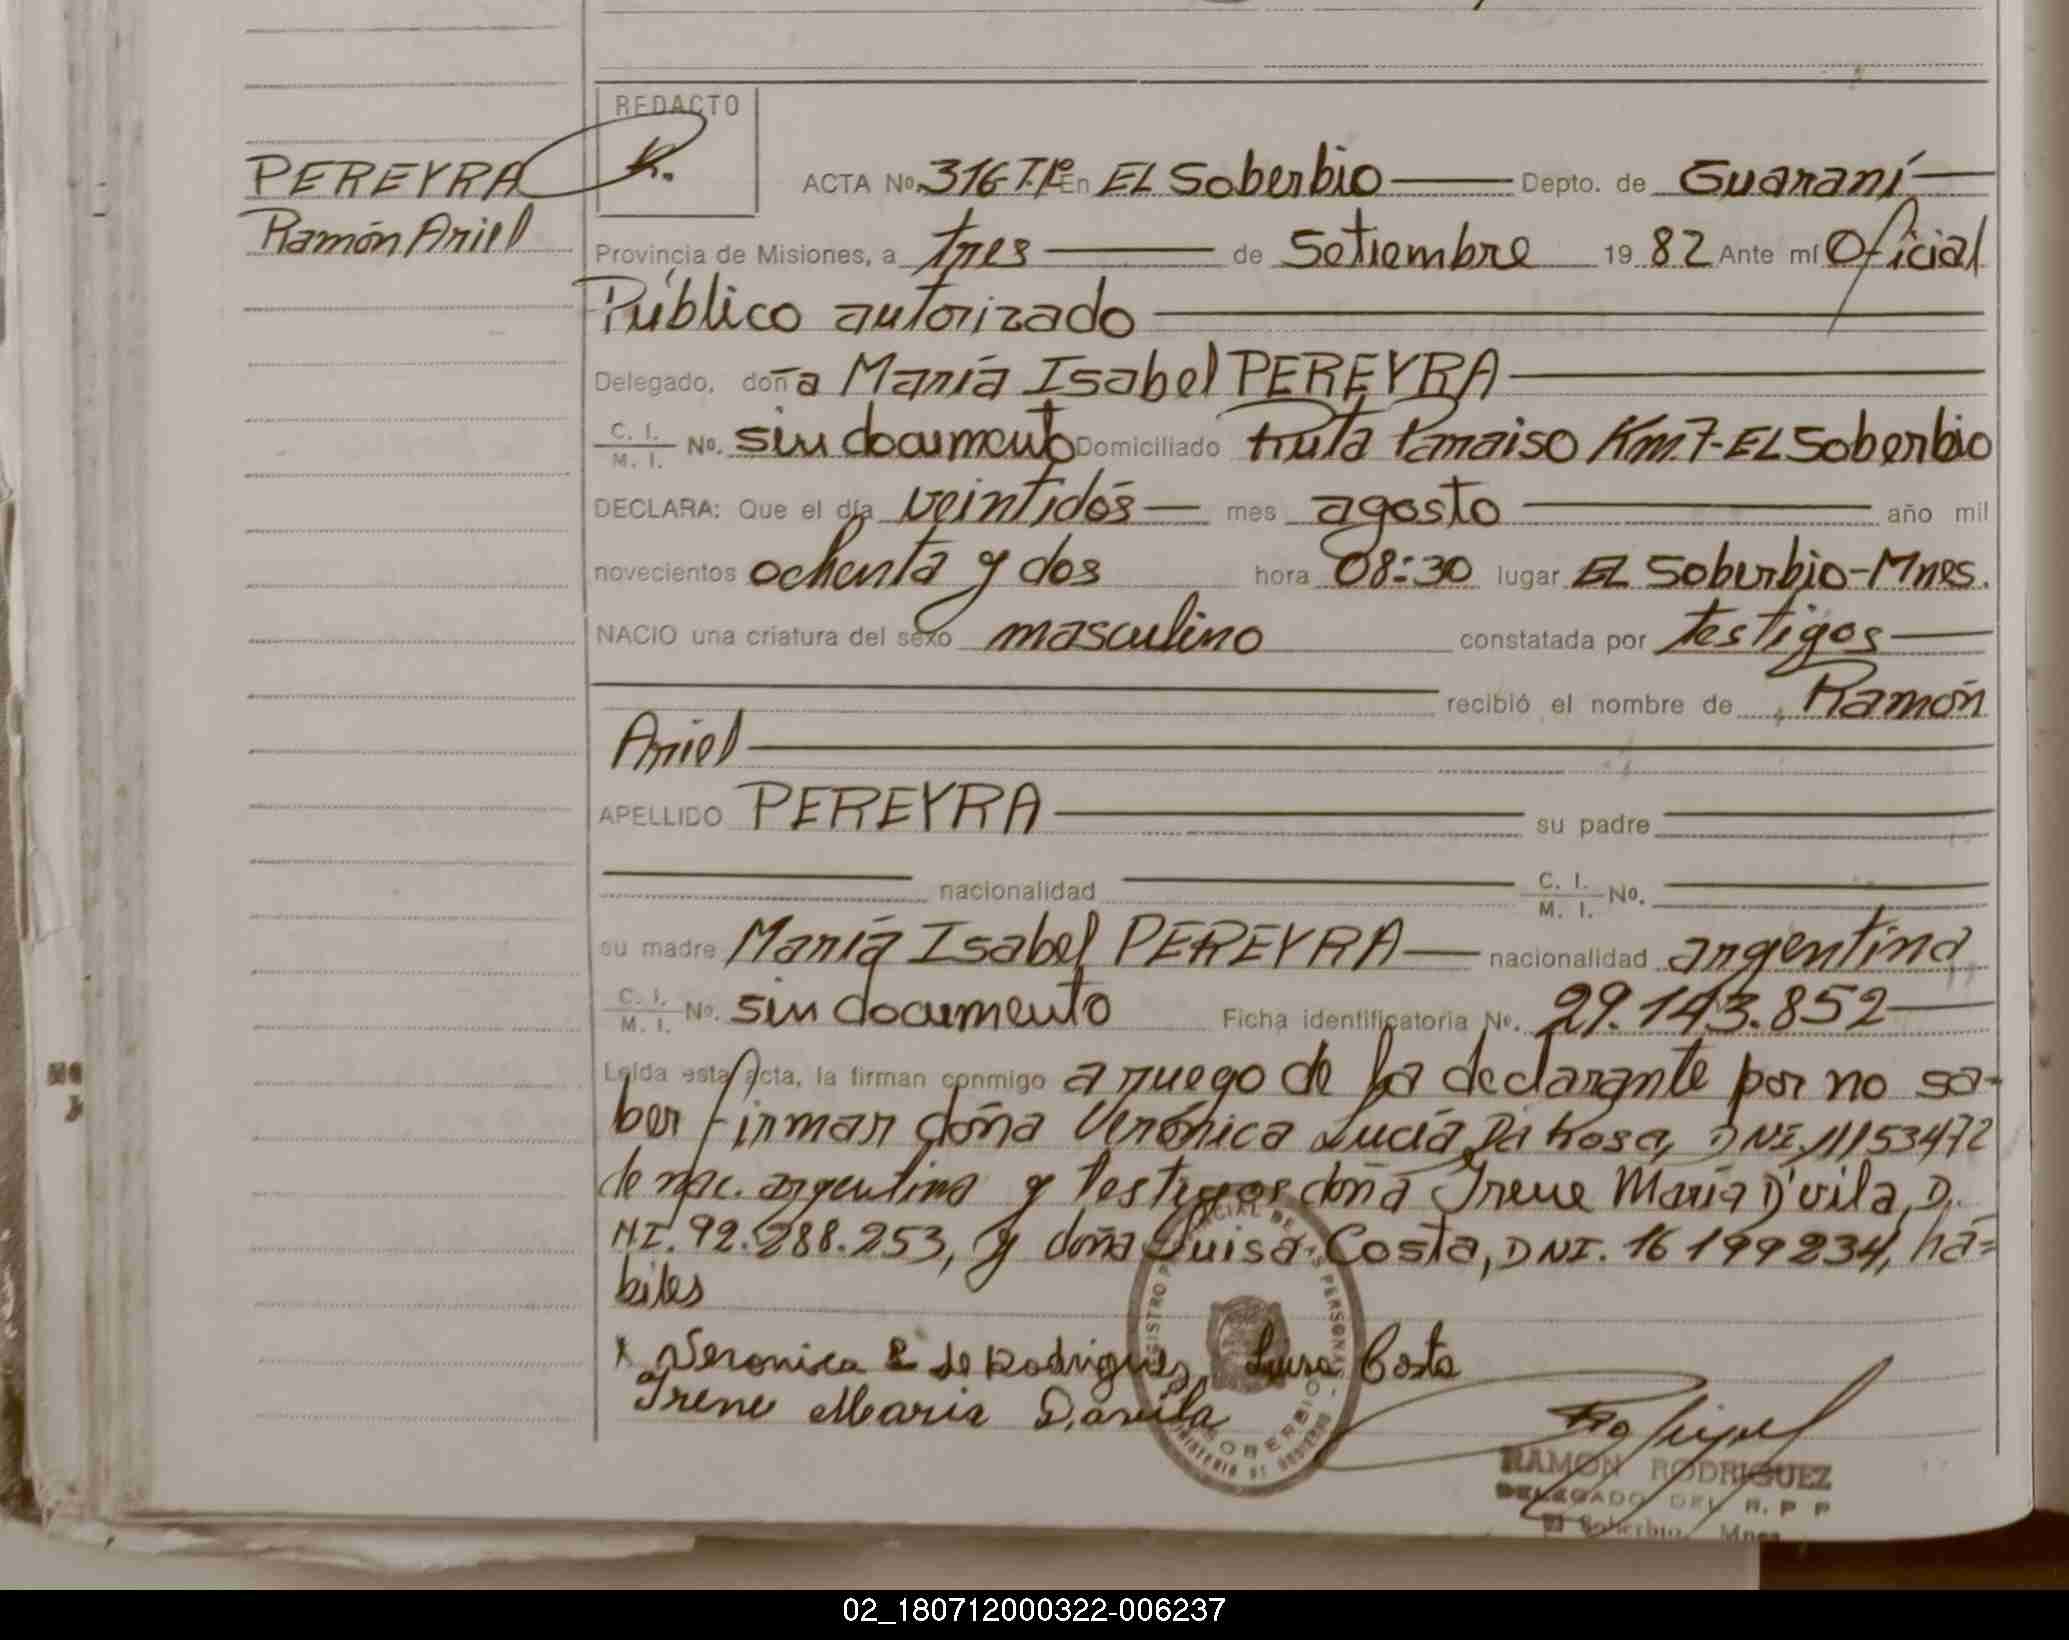 REDACTO
PEREYRA R. ACTA No. 316 T.Iº En EL Soberbio Depto. de Guaraní
Ramón Ariel
Provincia de Misiones, a tres de Setiembre 19 82 Ante mí Oficial
Público autorizado
Delegado, doña María Isabel PEREYRA
C. I. M. I. No. sin documento Domiciliado Ruta Paraiso Km.7-EL Soberbio
DECLARA: Que el día veintidós mes agosto año mil
novecientos ochenta y dos hora 08:30 lugar EL Soberbio-Mnes.
NACIO una criatura del sexo masculino constatada por testigos
recibió el nombre de Ramón
Ariel
APELLIDO PEREYRA su padre
nacionalidad C. I. M. I. No.
su madre María Isabel PEREYRA nacionalidad argentina
C. I. M. I. No. sin documento Ficha identificatoria No. 29.143.852
Leída esta acta, la firman conmigo a ruego de la declarante por no sa-
ber firmar doña Verónica Lucía Da Rosa, DNI. 11153472
de nac. argentina y testigos doña Irene María D'vila, D.
NI. 92.288.253, y doña Luisa Costa, DNI. 16 199234, há=
biles
x Veronica de Rodriguez Luisa Costa
Irene Maria D,avila
RAMON RODRIGUEZ
DELEGADO DEL R. P P
El Soberbio, Mnes
02_180712000322-006237